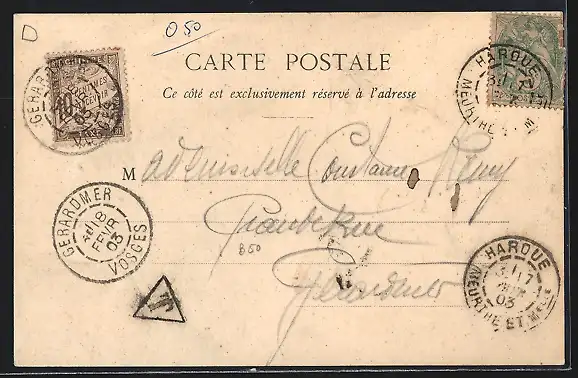 D
0 50
CARTE POSTALE
Ce côté est exclusivement réservé à l'adresse
HAROUE
MEURTHE ET M
GERARDMER
VOSGES
10
A PERCEVOIR
Mademoiselle Constance Remy
Grande Rue
Gérardmer
B50
GERARDMER
18
FEVR
03
VOSGES
T
HAROUE
17
03
MEURTHE ET MLLE